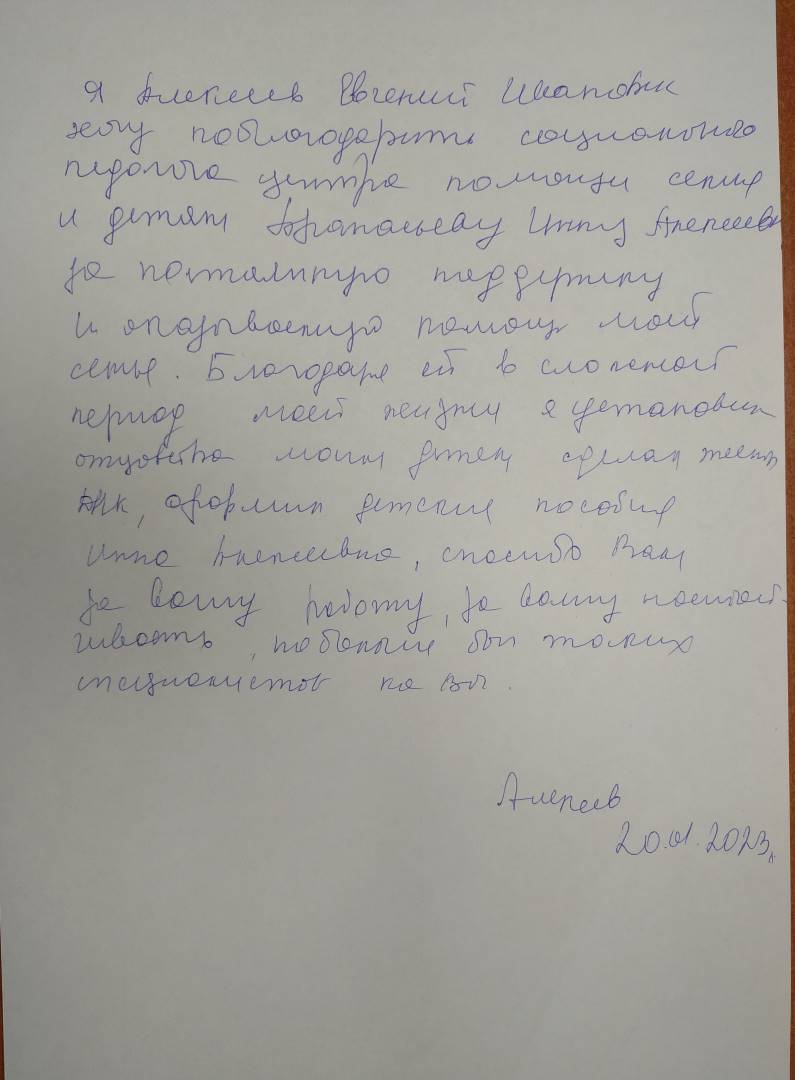 Я Алексеев Евгений Иванович
хочу поблагодарить социального
педагога центра помощи семье
и детям Афанасьеву Инну Алексеевн
за поддержку
и оказываемую помощь моей
семье. Благодаря ей в сложной
период моей жизни я установил
отцовство моим детям сделал тест
ДНК, оформил детские пособия
Инна Алексеевна, спасибо Вам
за вашу работу, за вашу настой-
чивость, побольше бы таких
специалистов ка Вы.
Алексеев
20.01.2023г